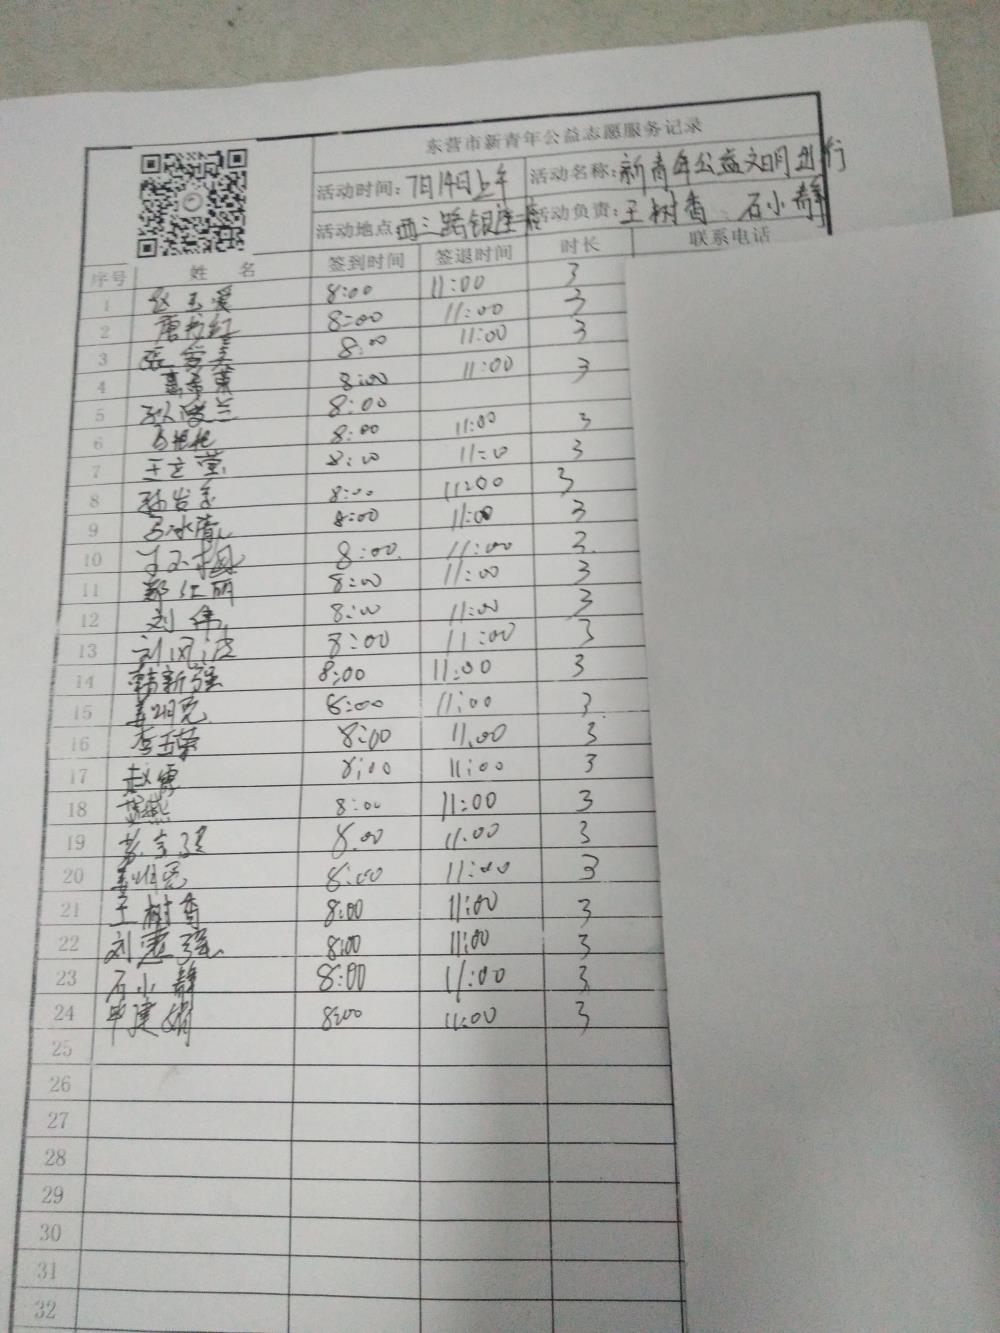 东营市新青年公益志愿服务记录
活动时间：7月14日上午 活动名称：新青年公益文明出行
活动地点 西三路银座 活动负责：王树香 石小静
序号 姓 名 签到时间 签退时间 时长 联系电话
1 赵玉爱 8:00 11:00 3
2 唐书红 8:00 11:00 3
3 8:00 11:00 3
4 8:00 11:00 3
5 8:00
6 8:00 11:00 3
7 王立莹 8:00 11:00 3
8 8:00 11:00 3
9 马冰清 8:00 11:00 3
10 8:00 11:00 3
11 郑仁丽 8:00 11:00 3
12 刘伟 8:00 11:00 3
13 刘风波 8:00 11:00 3
14 韩新强 8:00 11:00 3
15 8:00 11:00 3
16 李玉荣 8:00 11:00 3
17 赵霞 8:00 11:00 3
18 8:00 11:00 3
19 8:00 11:00 3
20 8:00 11:00 3
21 王树香 8:00 11:00 3
22 刘惠强 8:00 11:00 3
23 石小静 8:00 11:00 3
24 毕建娟 8:00 11:00 3
25
26
27
28
29
30
31
32